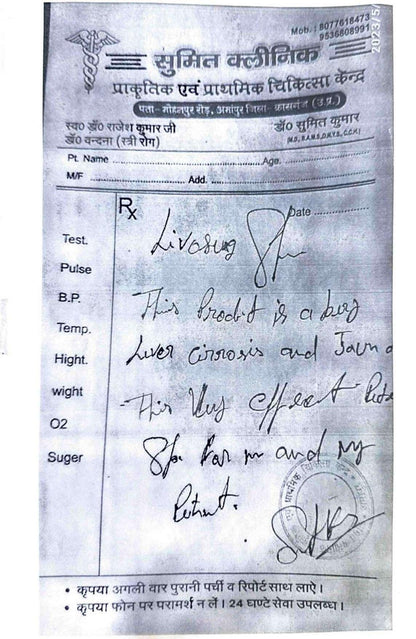 Mob.: 8077618473
9536808991
2023/5/
सुमित क्लीनिक
प्राकृतिक एवं प्राथमिक चिकित्सा केन्द्र
पता- मोहनपुर रोड़, अमांपुर जिला- कासगंज (उ.प्र.)
स्व० डॉ० राजेश कुमार जी
डॉ० सुमित कुमार
डॉ० वन्दना (स्त्री रोग)
Pt. Name Age.
M/F Add.
Rx
Date
Test.
Pulse
B.P.
Temp.
Hight.
wight
O2
Suger
This Prodct is a
Liver Cirrosis and Jaun
This Very Effect
and my
Petient.
प्राथमिक चिकित्सा
• कृपया अगली वार पुरानी पर्ची व रिपोर्ट साथ लाऐं।
• कृपया फोन पर परामर्श न लें। 24 घण्टे सेवा उपलब्ध।